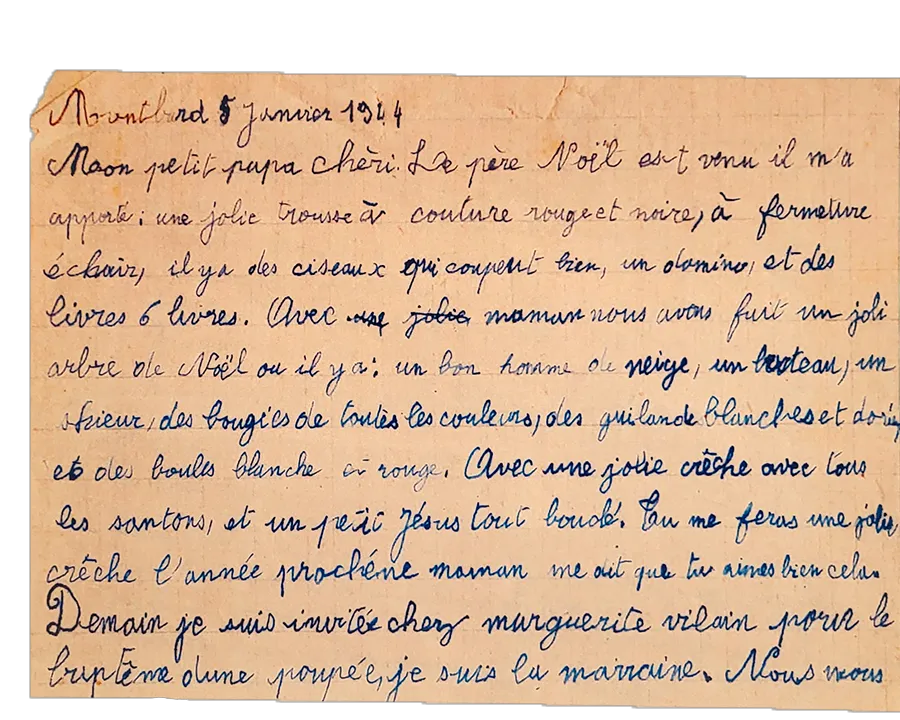 Montbard 5 Janvier 1944
Meon petit papa chèri. Le père Noël est venu il m'a
apporté : une jolie trousse à couture rouge et noire, à fermeture
échair, il ya des ciseaux qui coupent bien, un domino, et des
livres 6 livres. Avec une jolie maman nous avons fait un joli
arbre de Noël ou il ya : un bon homme de neige, un bateau, un
skieur, des bougies de toutes les couleurs, des guilande blanches et
et des boules blanche et rouge. Avec une jolie crêche avec tous
les santons, et un petit Jésus tout bouclé. Tu me feras une jolie
crêche l'année prochéne maman me dit que tu aimes bien cela.
Demain je suis invitée chez marguerite vilain pour le
baptême dune poupée, je suis la marraine. Nous